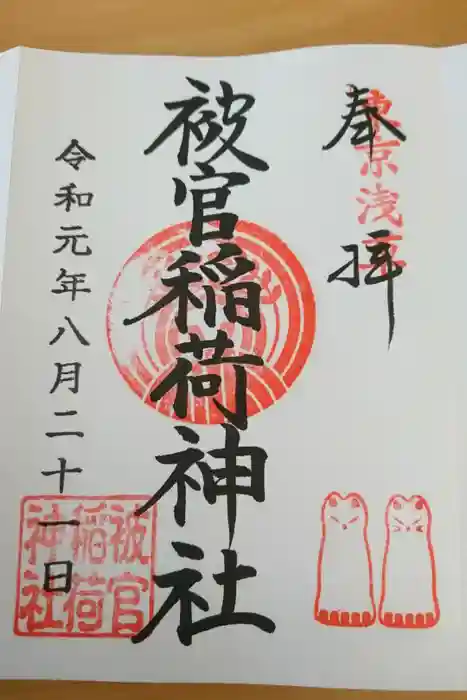 奉拝
東京浅草
被官稲荷神社
令和元年八月二十一日
被官
稲荷
神社